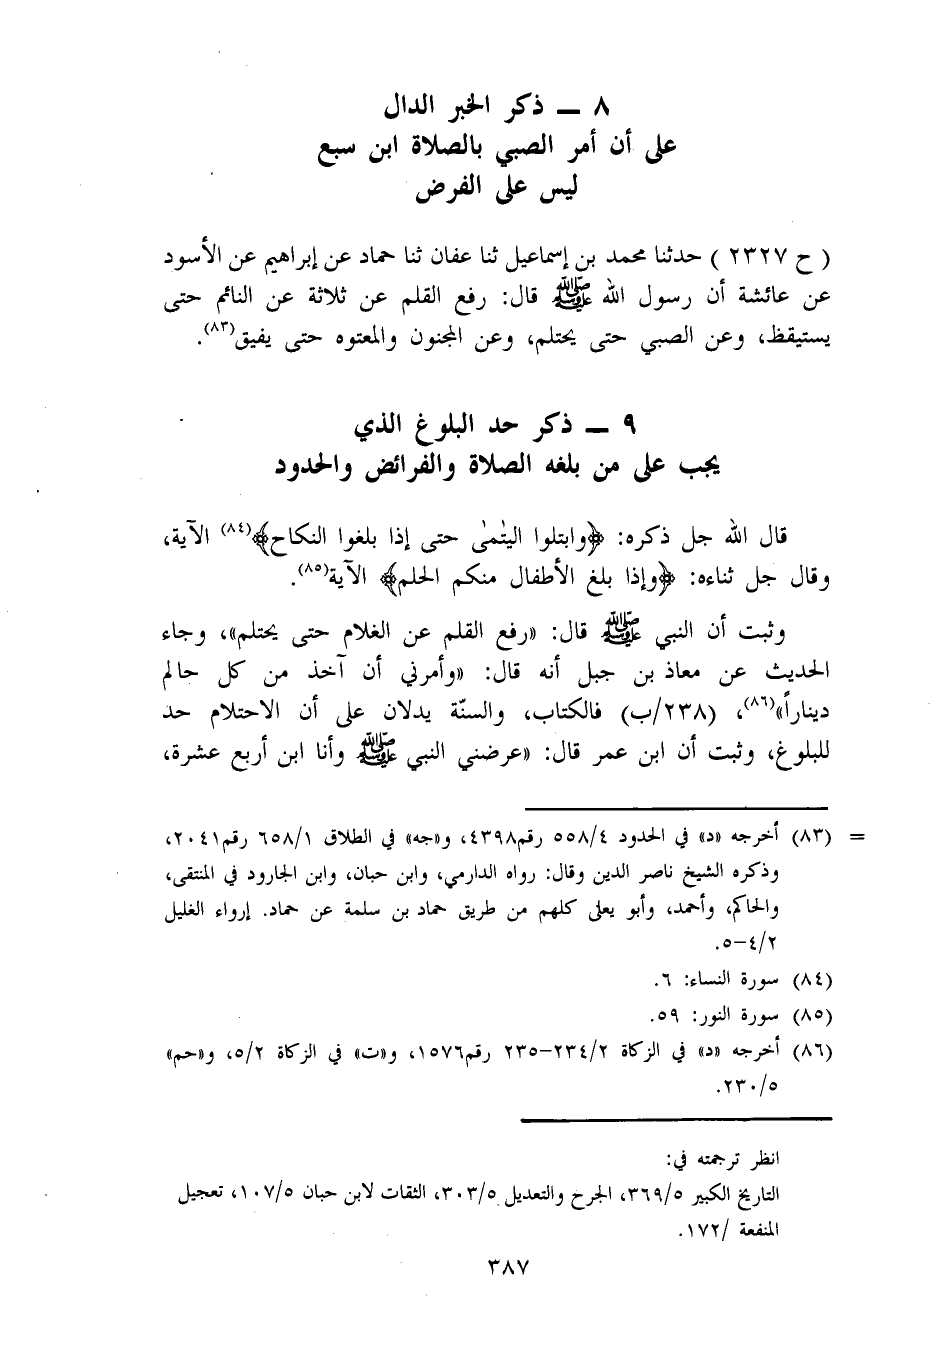 ٨ ــ ذكر الخبر الدال
على أن أمر الصبي بالصلاة ابن سبع
ليس على الفرض
( ح ٢٣٢٧ ) حدثنا محمد بن إسماعيل ثنا عفان ثنا حماد عن إبراهيم عن الأسود
عن عائشة أن رسول الله ﷺ قال: رفع القلم عن ثلاثة عن النائم حتى
يستيقظ، وعن الصبي حتى يحتلم، وعن المجنون والمعتوه حتى يفيق(٨٣).
٩ ــ ذكر حد البلوغ الذي
يجب على من بلغه الصلاة والفرائض والحدود
قال الله جل ذكره: ﴿وابتلوا اليتٰمىٰ حتى إذا بلغوا النكاح﴾(٨٤) الآية،
وقال جل ثناءه: ﴿وإذا بلغ الأطفال منكم الحلم﴾ الآية(٨٥).
وثبت أن النبي ﷺ قال: «رفع القلم عن الغلام حتى يحتلم»، وجاء
الحديث عن معاذ بن جبل أنه قال: «وأمرني أن آخذ من كل حالم
ديناراً»(٨٦)، (٢٣٨/ب) فالكتاب، والسنّة يدلان على أن الاحتلام حد
للبلوغ، وثبت أن ابن عمر قال: «عرضني النبي ﷺ وأنا ابن أربع عشرة،
= (٨٣) أخرجه «د» في الحدود ٥٥٨/٤ رقم٤٣٩٨، و«جه» في الطلاق ٦٥٨/١ رقم٢٠٤١،
وذكره الشيخ ناصر الدين وقال: رواه الدارمي، وابن حبان، وابن الجارود في المنتقى،
والحاكم، وأحمد، وأبو يعلى كلهم من طريق حماد بن سلمة عن حماد. إرواء الغليل
٤/٢–٥.
(٨٤) سورة النساء: ٦.
(٨٥) سورة النور: ٥٩.
(٨٦) أخرجه «د» في الزكاة ٢٣٤/٢–٢٣٥ رقم١٥٧٦، و«ت» في الزكاة ٥/٢، و«حم»
٢٣٠/٥.
انظر ترجمته في:
التاريخ الكبير ٣٦٩/٥، الجرح والتعديل ٣٠٣/٥، الثقات لابن حبان ١٠٧/٥، تعجيل
المنفعة /١٧٢.
٣٨٧